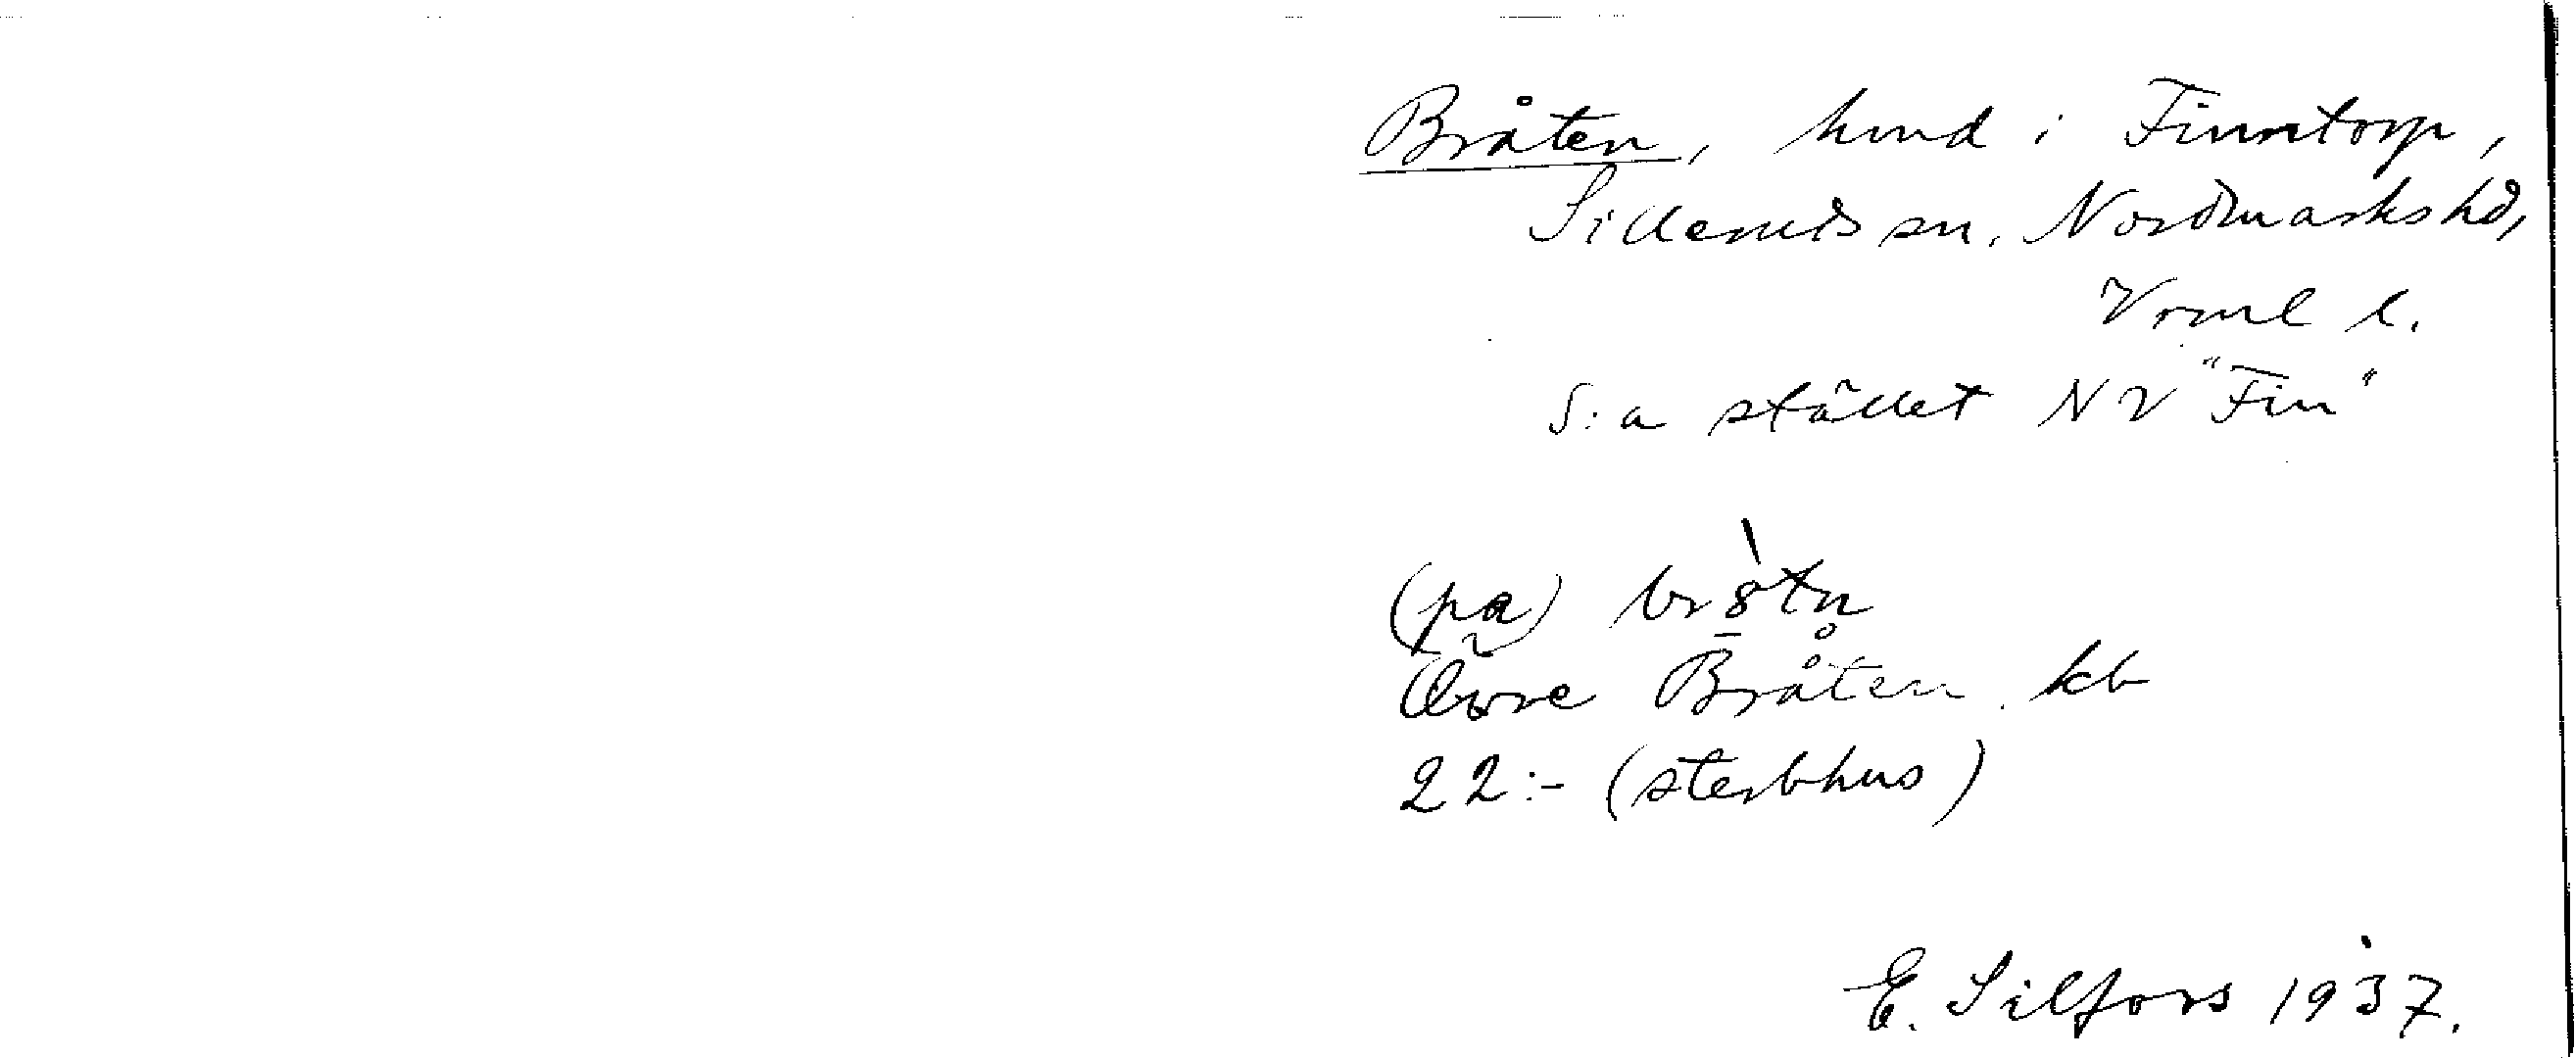 Bråten, hmd i Finntorp,
Silleruds sn. Nordmarks hd,
Vrml l.
S:a stället NV "Fin"
(pa)
Övre Bråten kb
22:- (sterbhus)
E. Silfors 1937.